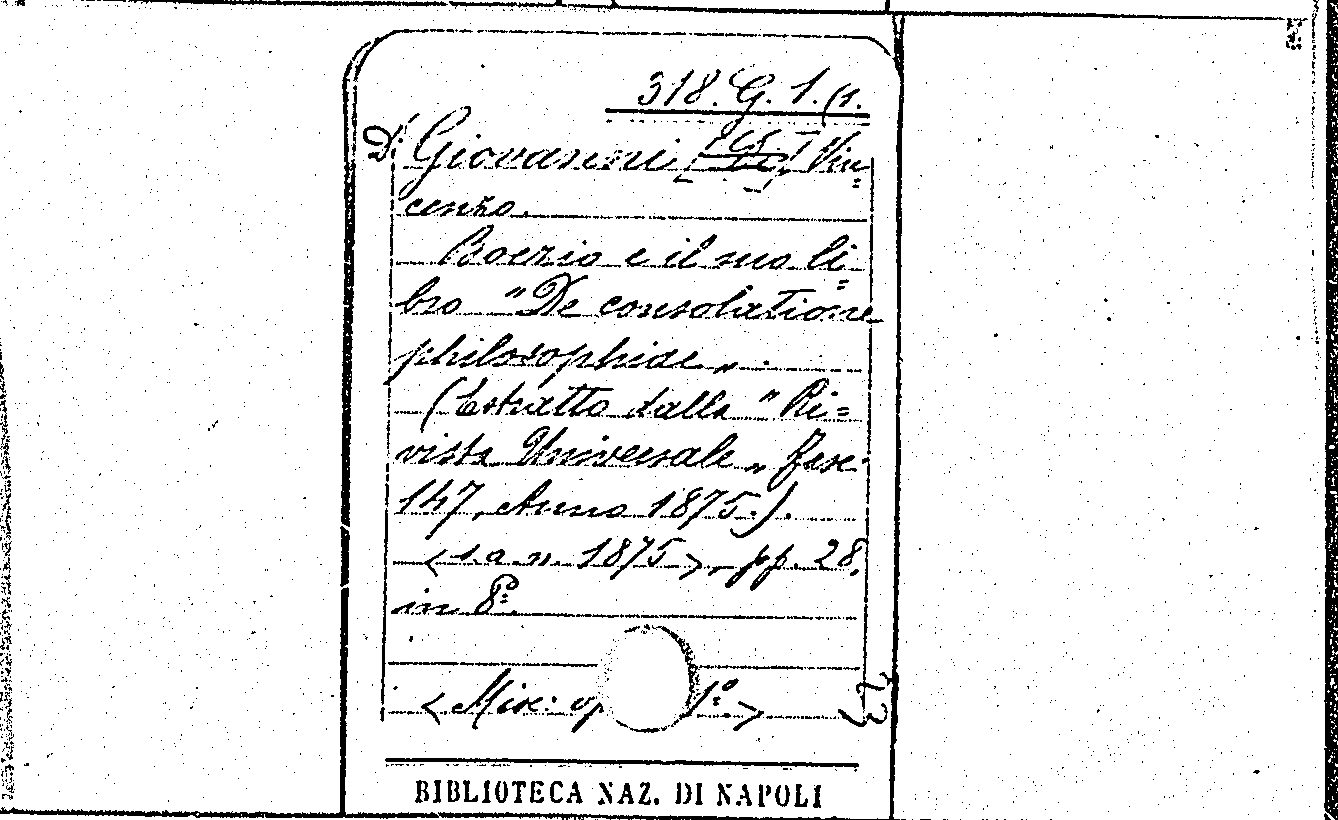 318. G. 1. (1.
Di Giovanni Vin=
cenzo.
Boezio e il suo li=
bro "De consolatione
philosophiae„.
(Estratto dalla "Ri=
vista Universale„ fasc.
147, Anno 1875.).
<s. a. n. 1875>, pp. 28,
in 8º.
<Misc: op 1º.>
BIBLIOTECA NAZ. DI NAPOLI